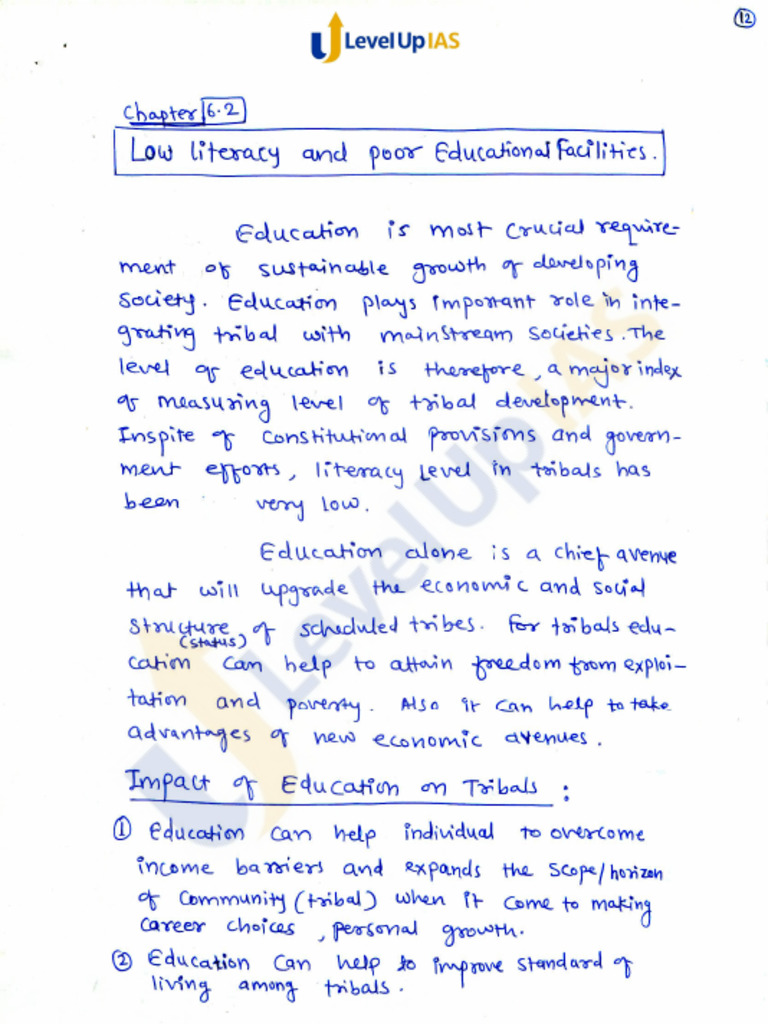 12
Level Up IAS
Chapter 6.2
Low literacy and poor Educational facilities.
Education is most crucial require-
ment of sustainable growth of developing
society. Education plays important role in inte-
grating tribal with mainstream societies. The
level of education is therefore, a major index
of measuring level of tribal development.
Inspite of constitutional provisions and govern-
ment efforts, literacy level in tribals has
been very low.
Education alone is a chief avenue
that will upgrade the economic and social
structure of scheduled tribes. For tribals edu-
(status)
cation can help to attain freedom from exploi-
tation and poverty. Also it can help to take
advantages of new economic avenues.
Impact of Education on Tribals :
① Education can help individual to overcome
income barriers and expands the scope/horizon
of community (tribal) when it come to making
career choices, personal growth.
② Education can help to improve standard of
living among tribals.
Level Up IAS